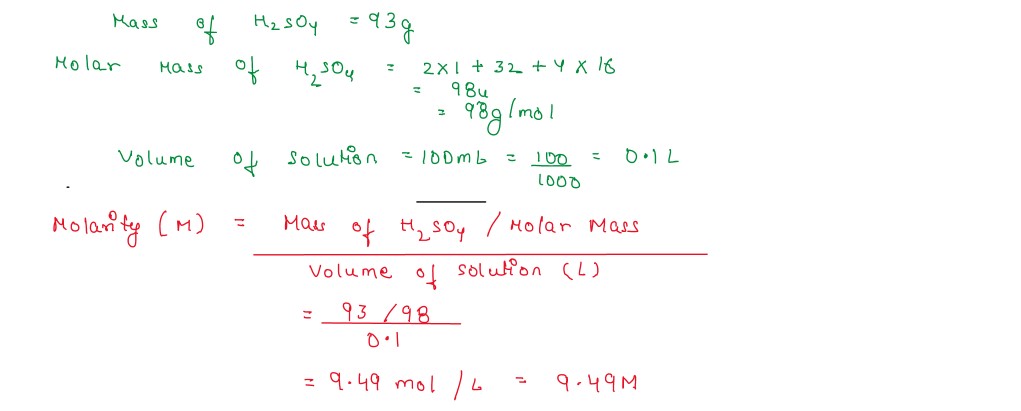 Mass of H2SO4 = 93g
Molar Mass of H2SO4 = 2×1 + 32 + 4 × 16
= 98u
= 98g/mol
Volume of solution = 100mL = 100/1000 = 0.1 L
Molarity (M) = Mass of H2SO4 / Molar Mass
Volume of solution (L)
= 93 / 98
0.1
= 9.49 mol / L = 9.49M